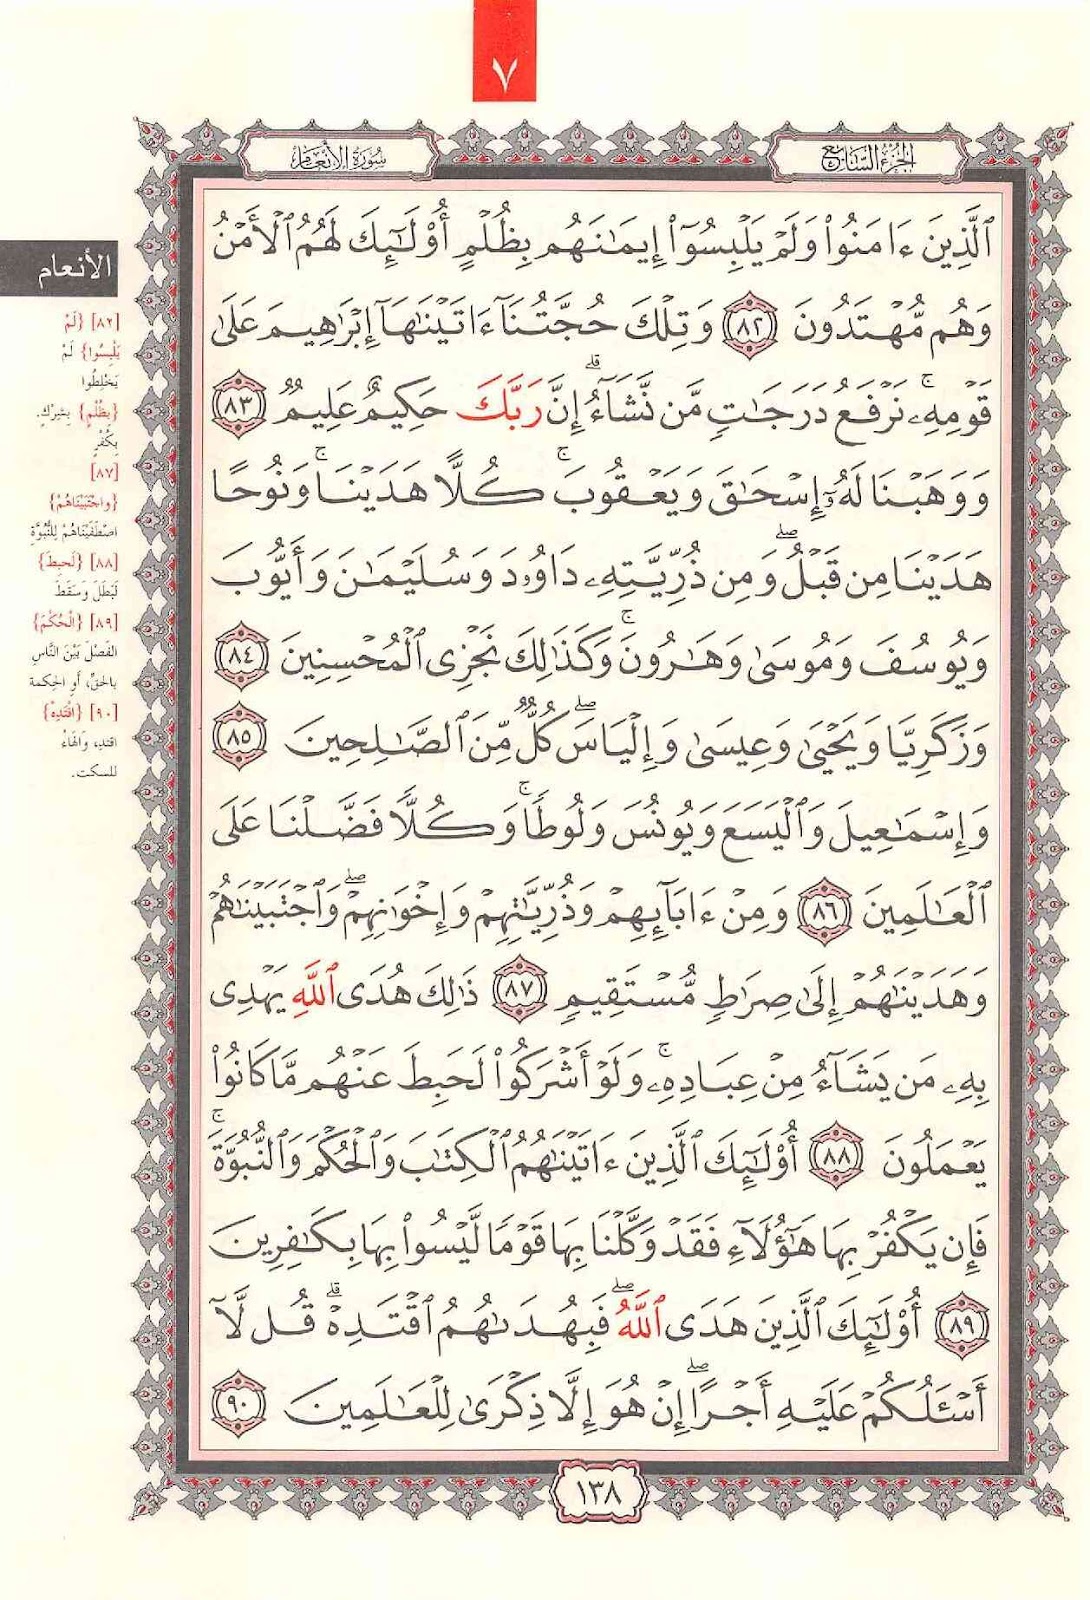 ٧
الجزء السابع
سورة الأنعام
ٱلَّذِينَ ءَامَنُوا۟ وَلَمْ يَلْبِسُوٓا۟ إِيمَـٰنَهُم بِظُلْمٍ أُو۟لَـٰٓئِكَ لَهُمُ ٱلْأَمْنُ
وَهُم مُّهْتَدُونَ ٨٢ وَتِلْكَ حُجَّتُنَآ ءَاتَيْنَـٰهَآ إِبْرَٰهِيمَ عَلَىٰ
قَوْمِهِۦ ۚ نَرْفَعُ دَرَجَـٰتٍ مَّن نَّشَآءُ ۗ إِنَّ رَبَّكَ حَكِيمٌ عَلِيمٌ ٨٣
وَوَهَبْنَا لَهُۥٓ إِسْحَـٰقَ وَيَعْقُوبَ ۚ كُلًّا هَدَيْنَا ۚ وَنُوحًا
هَدَيْنَا مِن قَبْلُ ۖ وَمِن ذُرِّيَّتِهِۦ دَاوُۥدَ وَسُلَيْمَـٰنَ وَأَيُّوبَ
وَيُوسُفَ وَمُوسَىٰ وَهَـٰرُونَ ۚ وَكَذَٰلِكَ نَجْزِى ٱلْمُحْسِنِينَ ٨٤
وَزَكَرِيَّا وَيَحْيَىٰ وَعِيسَىٰ وَإِلْيَاسَ ۖ كُلٌّ مِّنَ ٱلصَّـٰلِحِينَ ٨٥
وَإِسْمَـٰعِيلَ وَٱلْيَسَعَ وَيُونُسَ وَلُوطًا ۚ وَكُلًّا فَضَّلْنَا عَلَى
ٱلْعَـٰلَمِينَ ٨٦ وَمِنْ ءَابَآئِهِمْ وَذُرِّيَّـٰتِهِمْ وَإِخْوَٰنِهِمْ ۖ وَٱجْتَبَيْنَـٰهُمْ
وَهَدَيْنَـٰهُمْ إِلَىٰ صِرَٰطٍ مُّسْتَقِيمٍ ٨٧ ذَٰلِكَ هُدَى ٱللَّهِ يَهْدِى
بِهِۦ مَن يَشَآءُ مِنْ عِبَادِهِۦ ۚ وَلَوْ أَشْرَكُوا۟ لَحَبِطَ عَنْهُم مَّا كَانُوا۟
يَعْمَلُونَ ٨٨ أُو۟لَـٰٓئِكَ ٱلَّذِينَ ءَاتَيْنَـٰهُمُ ٱلْكِتَـٰبَ وَٱلْحُكْمَ وَٱلنُّبُوَّةَ ۚ
فَإِن يَكْفُرْ بِهَا هَـٰٓؤُلَآءِ فَقَدْ وَكَّلْنَا بِهَا قَوْمًا لَّيْسُوا۟ بِهَا بِكَـٰفِرِينَ
٨٩ أُو۟لَـٰٓئِكَ ٱلَّذِينَ هَدَى ٱللَّهُ ۖ فَبِهُدَىٰهُمُ ٱقْتَدِهْ ۗ قُل لَّآ
أَسْـَٔلُكُمْ عَلَيْهِ أَجْرًا ۖ إِنْ هُوَ إِلَّا ذِكْرَىٰ لِلْعَـٰلَمِينَ ٩٠
١٣٨
الأنعام
[٨٢] {لَمْ
يَلْبِسُوا} لَمْ
يَخْلِطُوا
{بِظُلْمٍ} بِشِرْكٍ.
بِكُفْرٍ
[٨٧]
{وَاجْتَبَيْنَاهُمْ}
اصْطَفَيْنَاهُمْ لِلنُّبُوَّةِ
[٨٨] {لَحَبِطَ}
لَبَطَلَ وسَقَطَ
[٨٩] {الْحُكْمَ}
الفَصْلَ بَيْنَ النَّاسِ
بالحَقِّ، أو الحِكمة
[٩٠] {اقْتَدِهْ}
اقتدِ، والهَاءُ
للسكت.